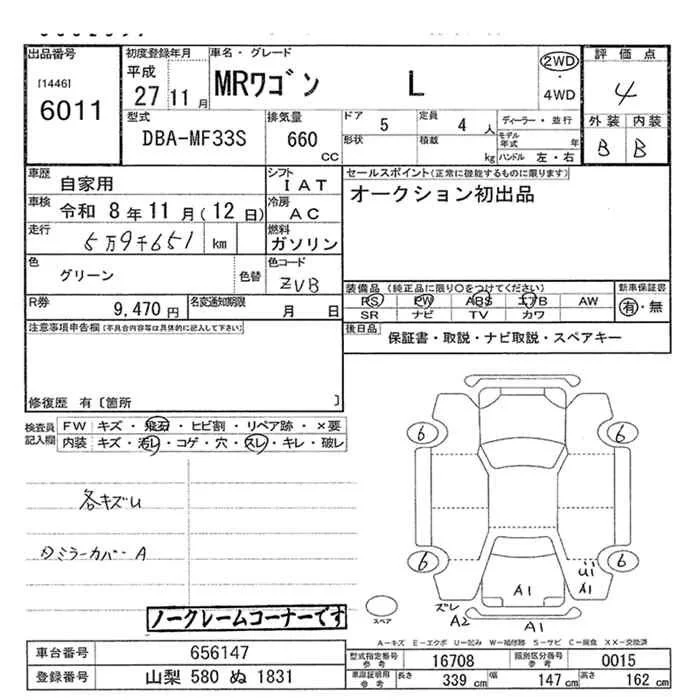 出品番号
[1446]
6011
初度登録年月
平成
27 11 月
車名・グレード
MRワゴン L
2WD
・
4WD
評価点
4
外装 内装
B B
型式
DBA-MF33S
排気量
660
cc
ドア 5
定員 4 人
形状
積載 kg
ディーラー・並行
モデル年式 年
ハンドル 左・右
車歴
自家用
シフト
IAT
セールスポイント(正常に機能するものに限ります)
オークション初出品
車検 令和 8年11月(12日)
冷房
AC
走行
5万9千651 km
燃料
ガソリン
色
グリーン
色替
色コード
ZVB
装備品(純正品に限り○をつけてください)
新車保証書
PS PW ABS エアB AW
SR ナビ TV カワ
有・無
R券
9,470 円
名変通知期限
月 日
後日品
保証書・取説・ナビ取説・スペアキー
注意事項申告欄(不具合内容等は具体的に記入して下さい)
修復歴 有〔箇所 〕
検査員
記入欄
FW キズ・飛石・ヒビ割・リペア跡・×要
内装 キズ・汚レ・コゲ・穴・スレ・キレ・破レ
各キズU
ミラーカバーA
6 6
6 6
U1
A1 A1
ズレ
A2 A1
スペア
ノークレームコーナーです
A-キズ E-エクボ U-凹み W-補修跡 S-サビ C-腐食 XX-交換済
車台番号 656147
登録番号 山梨 580 ぬ 1831
型式指定番号
参考
16708
類別区分番号
参考
0015
車庫証明用
参考
長さ 339 cm
幅 147 cm
高さ 162 cm